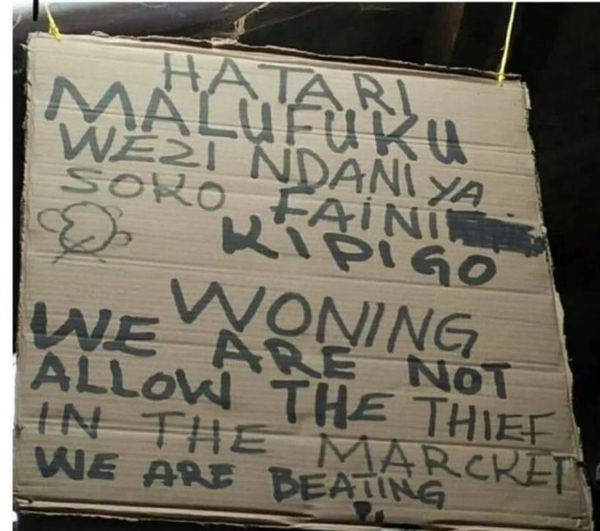 HATARI
MALUFUKU
WEZI NDANI YA
SOKO FAINI
KIPIGO
WONING
WE ARE NOT
ALLOW THE THIEF
IN THE MARCKET
WE ARE BEATING